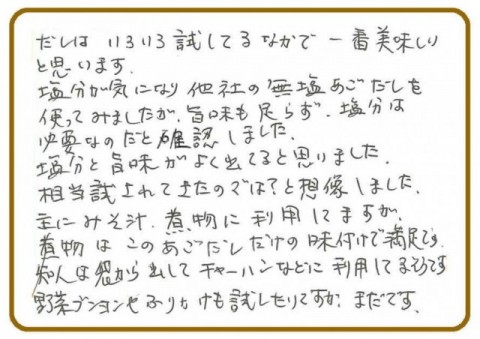 だしは いろいろ試してるなかで 一番美味しい
と思います.
塩分が気になり 他社の 無塩あごだしを
使ってみましたが、旨味も足らず、塩分は
必要なのだと確認しました.
塩分と旨味がよく出てると思いました.
相当試されてきたのでは?と想像しました.
主にみそ汁、煮物に利用してますが、
煮物はこのあごだしだけの味付けで満足です.
知人は袋から出してチャーハンなどに利用してるそうです
野菜ブンヨンやふりかけも試したいですが、まだです.